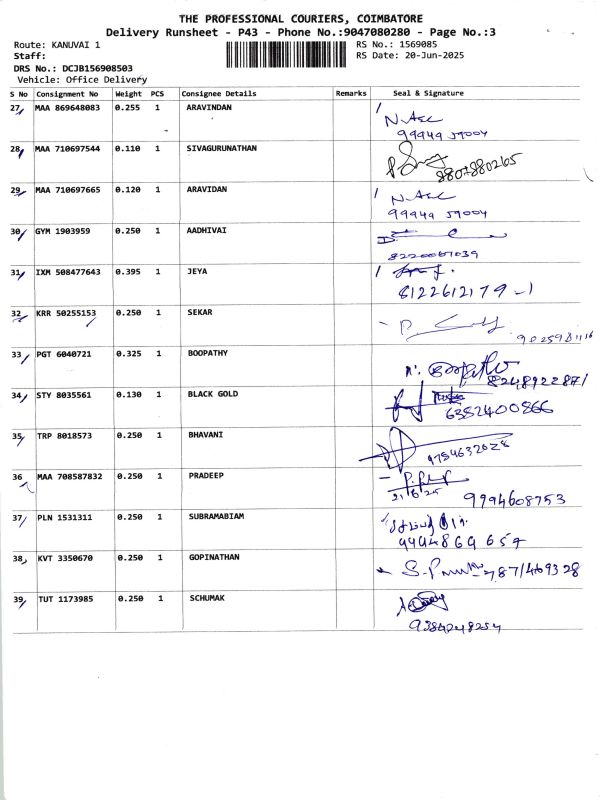 THE PROFESSIONAL COURIERS, COIMBATORE
Delivery Runsheet - P43 - Phone No.:9047080280 - Page No.:3
Route: KANUVAI 1
RS No.: 1569085
Staff:
RS Date: 20-Jun-2025
DRS No.: DCJB156908503
Vehicle: Office Delivery
S No Consignment No Weight PCS Consignee Details Remarks Seal & Signature
27 MAA 869648083 0.255 1 ARAVINDAN
99949 59004
28 MAA 710697544 0.110 1 SIVAGURUNATHAN
8807880265
29 MAA 710697665 0.120 1 ARAVIDAN
99949 59004
30 GYM 1903959 0.250 1 AADHIVAI
31 IXM 508477643 0.395 1 JEYA
8122612179-1
32 KRR 50255153 0.250 1 SEKAR
33 PGT 6040721 0.325 1 BOOPATHY
8248922871
34 STY 8035561 0.130 1 BLACK GOLD
6382400866
35 TRP 8018573 0.250 1 BHAVANI
9754632028
36 MAA 708587832 0.250 1 PRADEEP
21/6/25
9994608753
37 PLN 1531311 0.250 1 SUBRAMABIAM
38 KVT 3350670 0.250 1 GOPINATHAN
39 TUT 1173985 0.250 1 SCHUMAK
9384248254